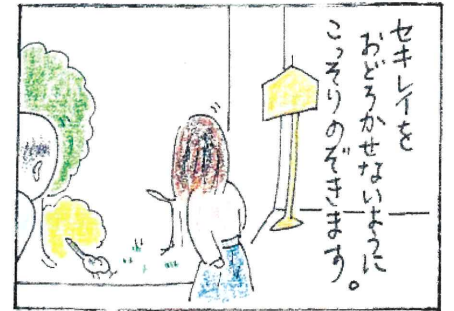 セキレイを
おどろかせないように
こっそりのぞきます。